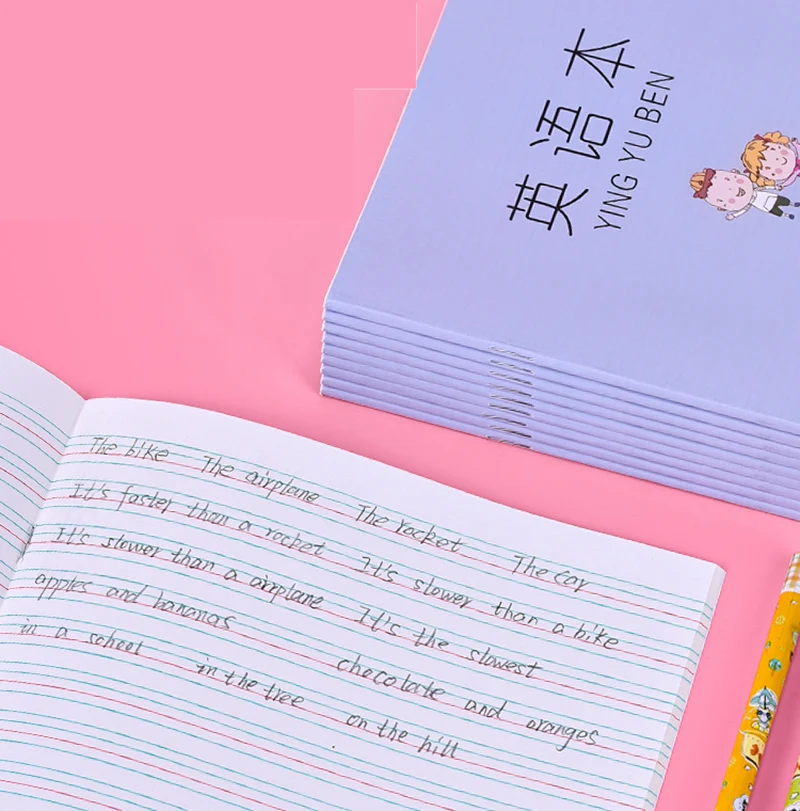 英语本
YING YU BEN
The bike The airplane The rocket The car
It's faster than a rocket It's slower than a bike
It's slower than a airplane It's the slowest
apples and bananas chocolate and oranges
in a school in the tree on the hill